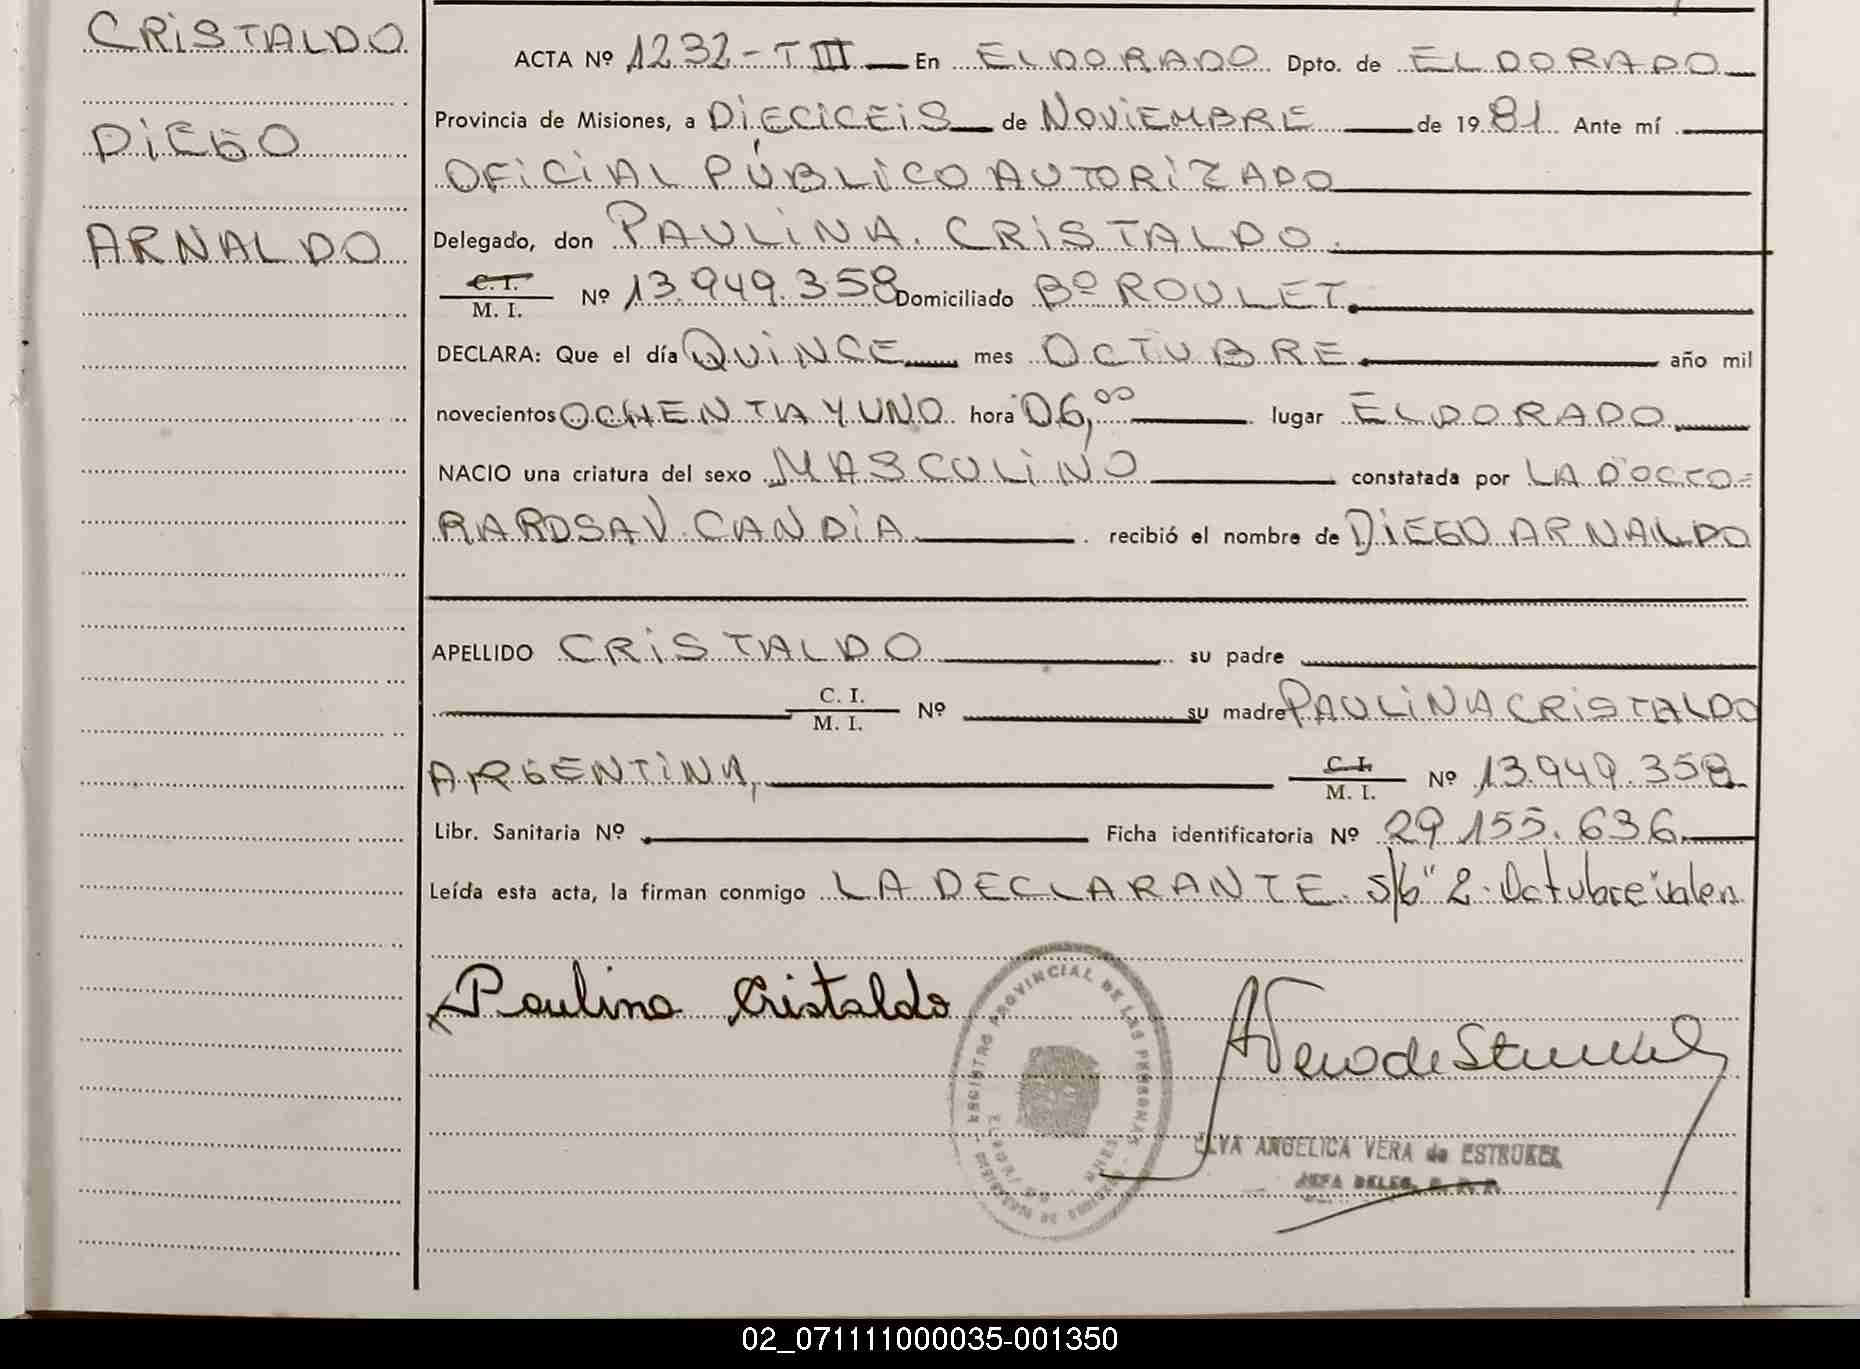 CRISTALDO
DIEGO
ARNALDO
ACTA Nº 1232-T III En ELDORADO Dpto. de ELDORADO
Provincia de Misiones, a DIECICEIS de NOVIEMBRE de 1981 Ante mí
OFICIAL PÚBLICO AUTORIZADO
Delegado, don PAULINA CRISTALDO.
C. I.
M. I. Nº 13.949.358 Domiciliado Bº ROULET.
DECLARA: Que el día QUINCE mes OCTUBRE año mil
novecientos OCHENTA Y UNO hora 06,00 lugar ELDORADO
NACIO una criatura del sexo MASCULINO constatada por LA DOCTO=
RA ROSA V. CANDIA recibió el nombre de DIEGO ARNALDO
APELLIDO CRISTALDO su padre
C. I.
M. I. Nº su madre PAULINA CRISTALDO
ARGENTINA,
C. I.
M. I. Nº 13.949.358
Libr. Sanitaria Nº Ficha identificatoria Nº 29.155.636
Leída esta acta, la firman conmigo LA DECLARANTE. S/b "2. Octubre" valen
Paulina Cristaldo
REGISTRO PROVINCIAL DE LAS PERSONAS
ELVA ANGELICA VERA de ESTRUKEL
JEFA DELEG. R. P. P.
02_071111000035-001350